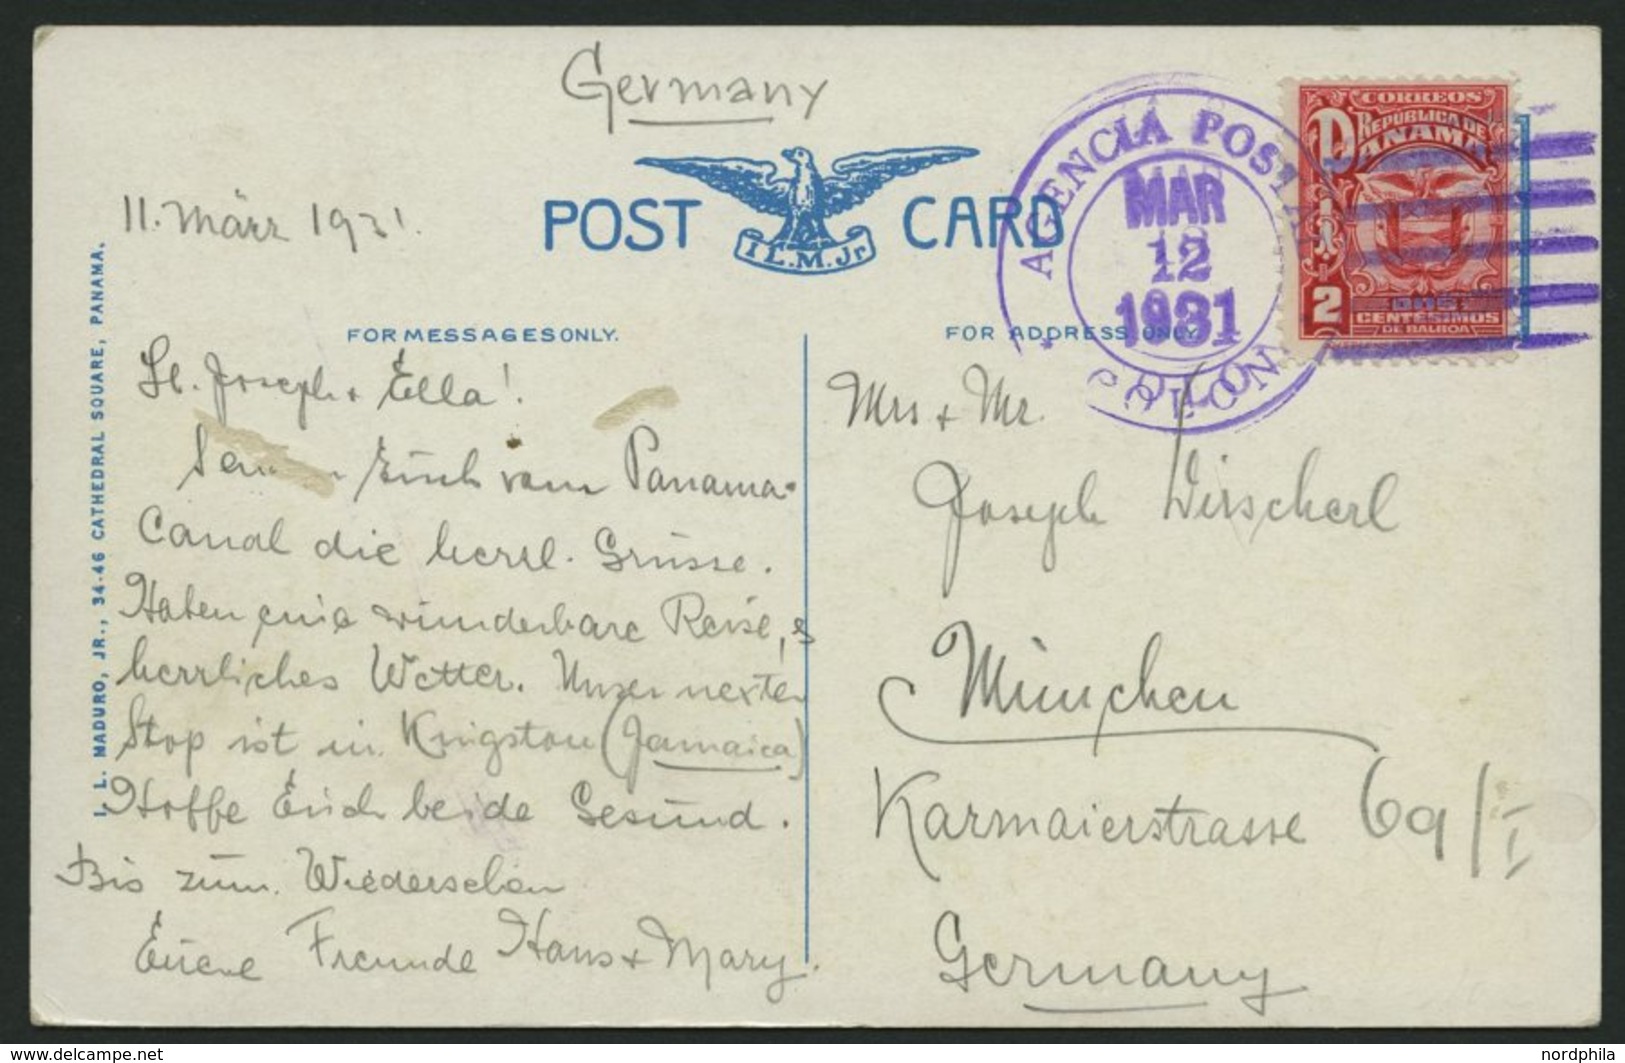 Germany
11. März 1931.
POST CARD
I.L.M.Jr.
AGENCIA POSTAL
MAR
12
1931
COLON
CORREOS
REPUBLICA DE
PANAMA
2
DOS
CENTESIMOS
DE BALBOA
FOR MESSAGES ONLY.
FOR ADDRESS ONLY
I. L. MADURO, JR., 34-46 CATHEDRAL SQUARE, PANAMA.
Lb. Joseph + Ella!
Euch vom Panama-
Canal die herzl. Grüsse.
Haben eine wunderbare Reise, &
herrliches Wetter. Unser nexter
Stop ist in Kingston (Jamaica)
Hoffe Euch beide Gesund.
Bis zum Wiedersehen
Euere Freunde Hans + Mary.
Mrs + Mr.
Joseph Wirscherl
München
Karmaierstrasse 69/I
Germany
www.delcampe.net
nordphila